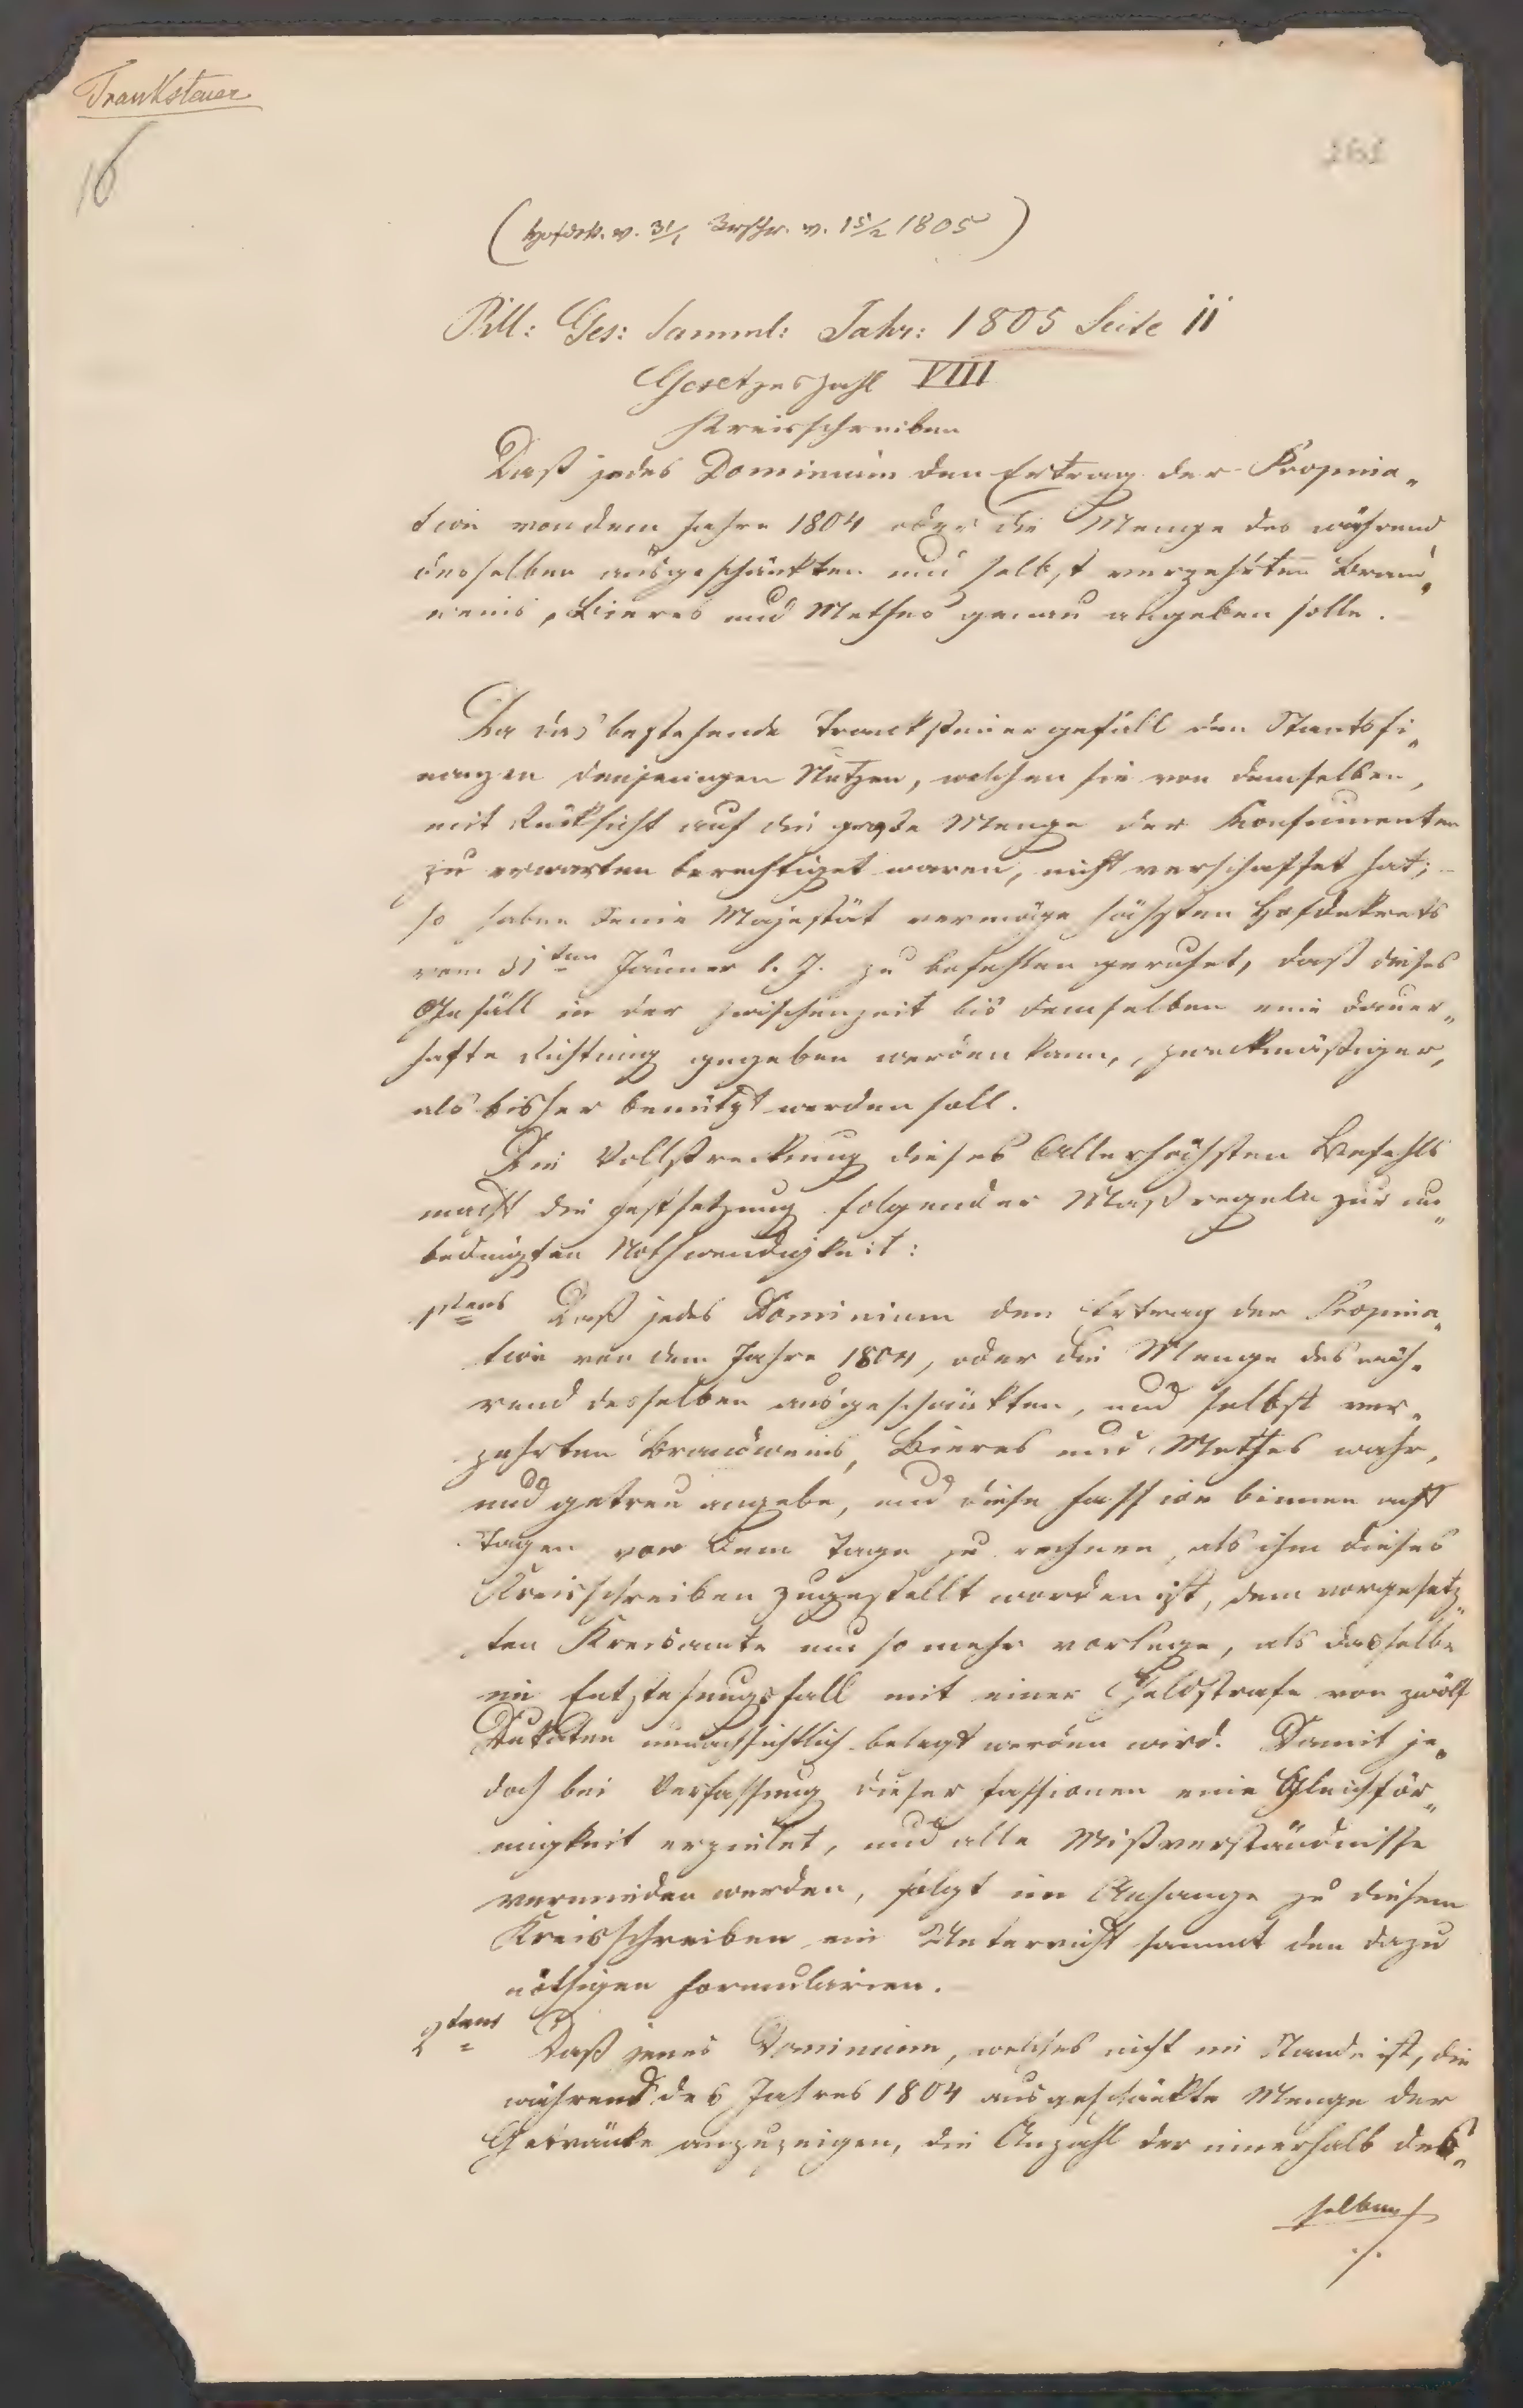 Tranksteuer
16
161
(Hofdek. v. 31/1 Krschr. v. 15/2 1805)
Pill: Ges: Samml: Jahr: 1805 Seite 11
Gesetzeszahl VIII
Kreisschreiben
Daß jedes Dominium den Ertrag der Propina„
tion von dem Jahre 1804 oder die Menge des während
desselben ausgeschänkten und selbst verzehrten Brand„
weins, Bieres und Methes genau angeben solle.
Da das bestehende Tranksteuergefäll den Staatsfi„
nanzen denjenigen Nutzen, welchen sie von demselben,
mit Rücksicht auf die große Menge der Konsumenten
zu erwarten berechtiget waren, nicht verschaffet hat;
so haben Seine Majestät vermöge höchsten Hofdekrets
vom 31ten Jänner l. J. zu befehlen geruhet, daß dieses
Gefäll in der Zwischenzeit bis demselben eine dauer„
hafte Richtung gegeben werden kann, zweckmäßiger,
als bisher benützt werden soll.
Die Vollstreckung dieses Allerhöchsten Befehls
macht die Festsetzung folgender Maßregeln zur un„
bedingten Nothwendigkeit:
1stens Daß jedes Dominium den Ertrag der Propina„
tion von dem Jahre 1804, oder die Menge des wäh„
rend desselben ausgeschänkten, und selbst ver„
zehrten Brandweins, Bieres und Methes wahr,
und getreu angebe, und diese Fassion binnen acht
Tagen von dem Tage zu rechnen, als ihm dieses
Kreisschreiben zugestellt worden ist, dem vorgesetz„
ten Kreisamte um so mehr vorlege, als dasselbe
im Entstehungsfall mit einer Geldstrafe von zwölf
Dukaten unnachsichtlich belegt werden wird. Damit je„
doch bei Verfassung dieser Fassionen eine Gleichför„
migkeit erzielet, und alle Mißverständnisse
vermieden werden, folgt im Anhange zu diesem
Kreisschreiben ein Unterricht sammt den dazu
nöthigen Formularien.
2tens Daß jenes Dominium, welches nicht im Stande ist, die
während des Jahres 1804 ausgeschänkte Menge der
Getränke anzuzeigen, die Anzahl der innerhalb des„
selben
./.